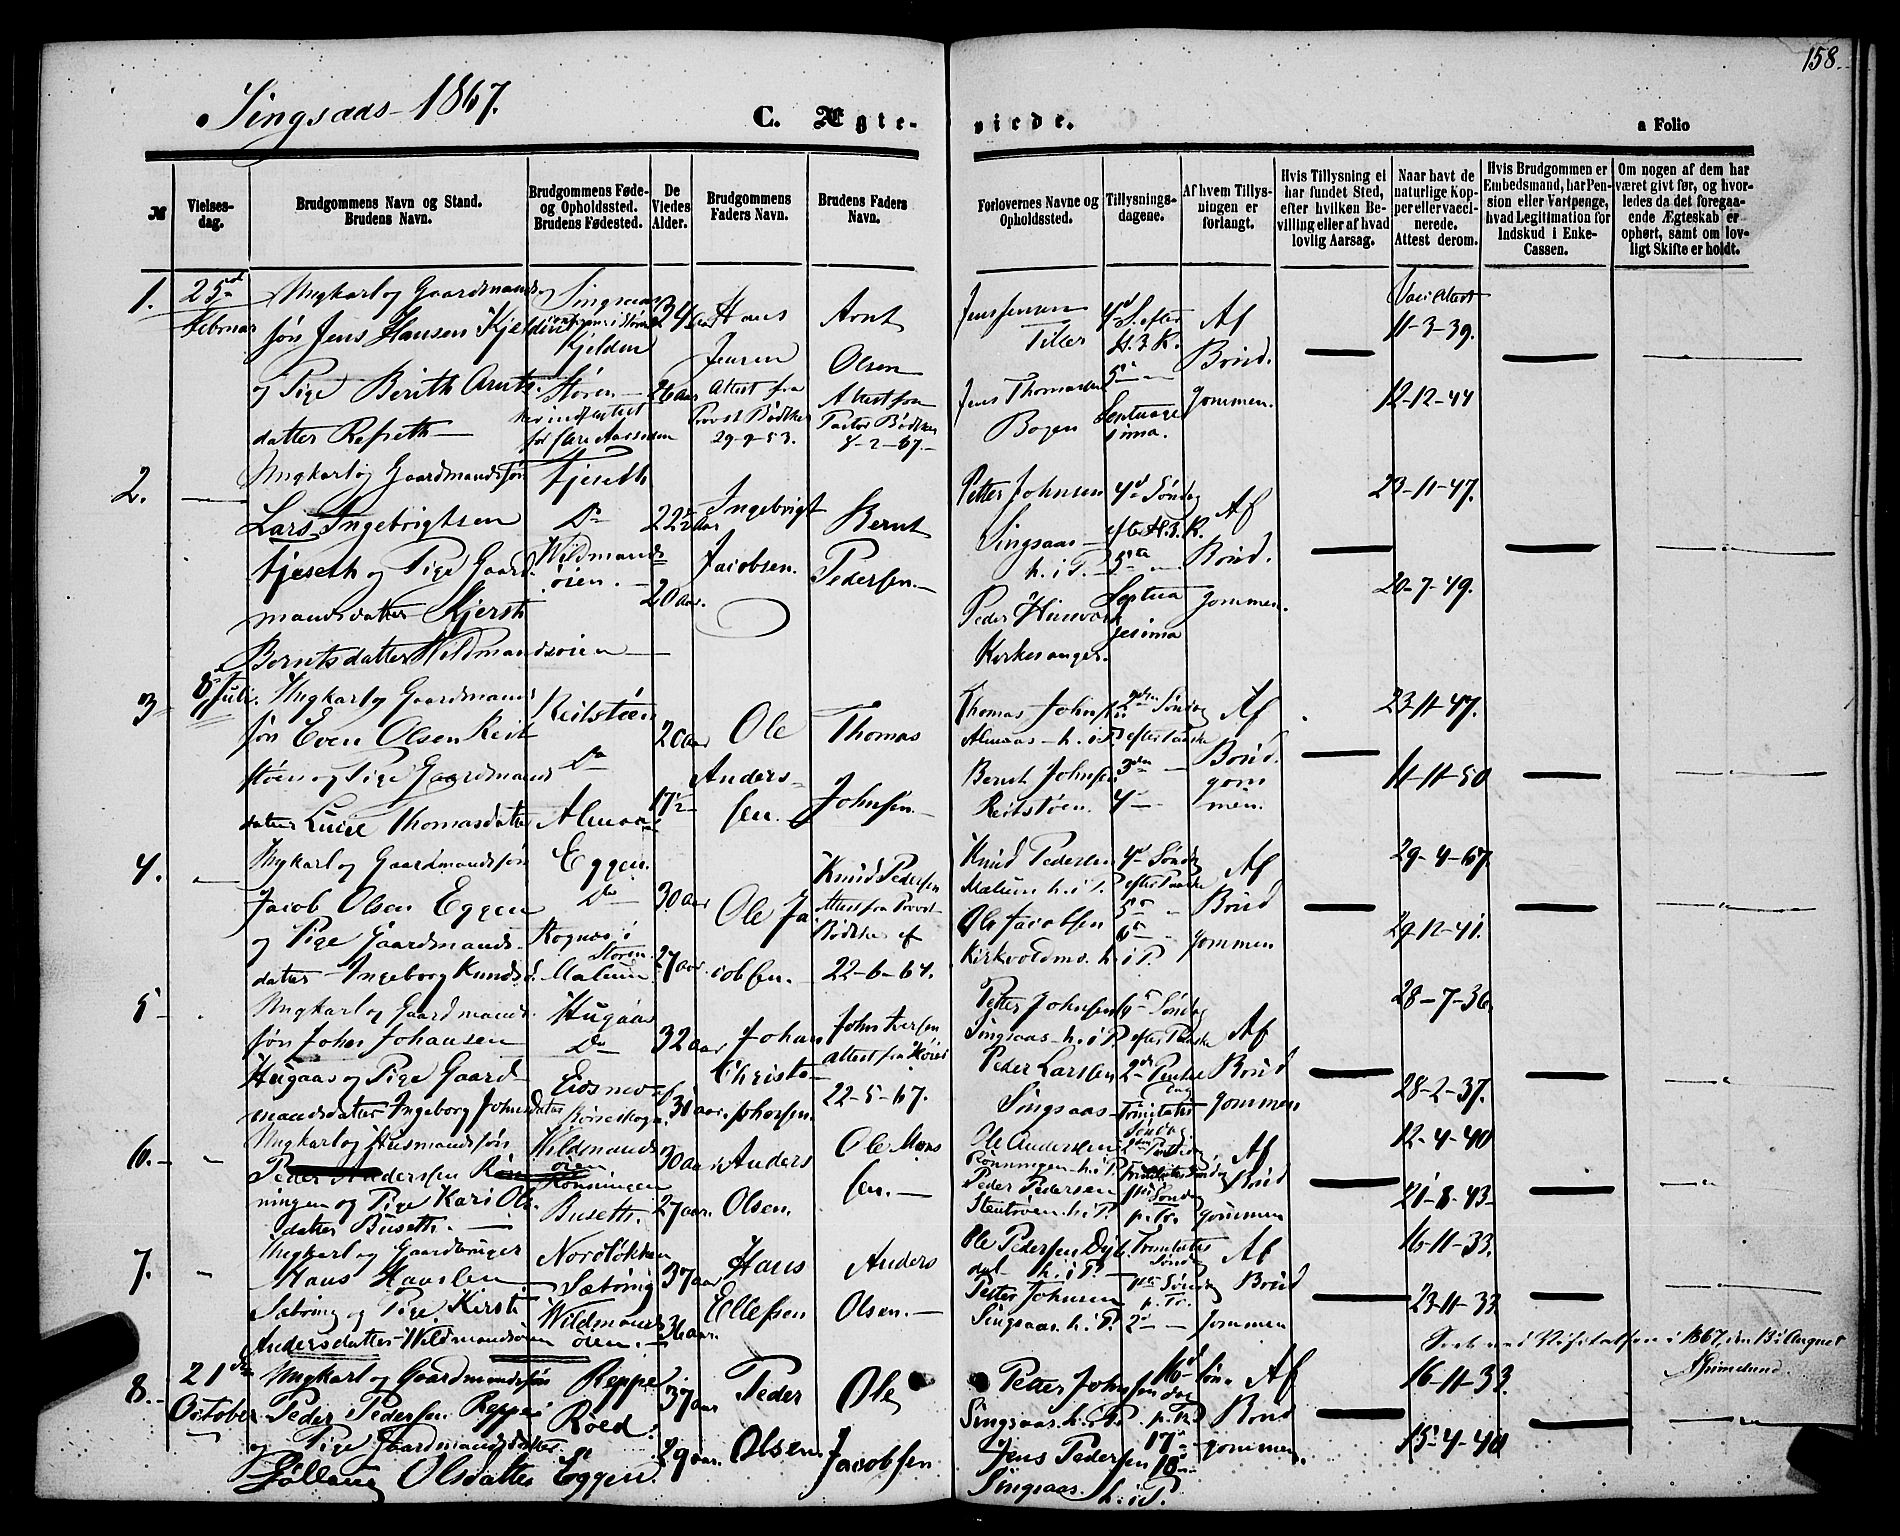 158.
Singsaas 1867.
C. Ægte-
viede.
a Folio
№
Vielses-
dag.
Brudgommens Navn og Stand.
Brudens Navn.
Brudgommens Føde-
og Opholdssted.
Brudens Fødested.
De
Viedes
Alder.
Brudgommens
Faders Navn.
Brudens Faders
Navn.
Forlovernes Navne og
Opholdssted.
Tillysnings-
dagene.
Af hvem Tillys-
ningen er
forlangt.
Hvis Tillysning ei
har fundet Sted,
efter hvilken Be-
villing eller af hvad
lovlig Aarsag.
Naar havt de
naturlige Kop-
per eller vacci-
nerede.
Attest derom.
Hvis Brudgommen er
Embedsmand, har Pen-
sion eller Vartpenge,
hvad Legitimation for
Indskud i Enke-
Cassen.
Om nogen af dem har
været givt før, og hvor-
ledes da det foregaa-
ende Ægteskab er
ophørt, samt om lov-
ligt Skifte er holdt.
1.
25de
Februar
Ungkarl og Gaardmands
søn Jens Hansen Kjelden
og Pige Berith Arnts-
datter Refseth
Singsaas
Kjelden
Støren
34 Aar
26 Aar
Hans
Jensen
Attest fra
Provst Bødtker
29-9-53.
Arnt
Olsen
Attest fra
Pastor Bødtker
4-2-67.
Jens Jensen
Tiller
Jens Thomassen
Bogen
4d S. efter
H. 3. K.
5te
Septuage
sima.
Af
Brud.
gommen.
11-3-39.
12-12-44
2.
Ungkarl og Gaardmandssøn
Lars Ingebrigtsen
Fjeseth og Pige Gaard
mandsdatter Kjersti
Berntsdatter Wildmandsøien
Fjeseth
Do
Wildmands
øien.
22 1/2 Aar
20 Aar.
Ingebrigt
Jacobsen.
Bernt
Pedersen.
Petter Johnsen
Singsaas
h. i P.
Peder
Kirkevanger.
4d Søndag
efter H. 3. K.
5te
Septua
gesima
Af
Brud
gommen.
23-11-47.
20-7-49.
3
8de
Juli.
Ungkarl og Gaardmands
søn Even Olsen Reit
støen og Pige Gaardmands
datter Luise Thomasdatter
Reitstøen
Do
Almaas
20 Aar
17 1/2
Ole
Anders-
sen.
Thomas
Johnsen.
Thomas Johnsen
Almaas h. i P.
Bernt Johnsen
Reitstøen.
2den Søndag
efter Paaske
3die
4de
Af
Brud.
gom
men.
23-11-47.
11-11-50
4.
Ungkarl og Gaardmandssøn
Jacob Olsen Eggen
og Pige Gaardmands-
datter Ingeborg Knudsd.
Eggen.
Do
Rognæs i
Støren.
Malum
30 Aar
27 Aar.
Ole Ja-
cobsen.
Knud Pedersen
Attest fra Provst
Bødtker af
22-6-67.
Knud Pedersen
Malum h. i P.
Ole Jacobsen
Kirkvoldmo. h. i P.
4d Søndag
efter Paaske
5te
6te
Af
Brud
gommen
29-4-67.
29-12-41.
5
Ungkarl og Gaardmands-
søn John Johansen
Hugaas og Pige Gaard-
mandsdatter Ingeborg Johnsdatter
Hugaas
Do
Eidsmo
32 Aar
31 Aar.
Johan
Christo-
phersen.
John Iversen
Attest fra Horg
22-5-67.
Petter Johnsen
Singsaas h. i P.
Peder Larssen
Singsaas
6te Søndag
efter Paaske
2den Pintse
dag
Trinitatis
Søndag
Af
Brud
gommen
28-7-36.
28-2-37.
6.
Ungkarl og Husmandssøn
Peder Anderssen Røn
ningen og Pige Kari Ols
datter Buseth.
Rønningen
Buseth.
30 Aar
27 Aar.
Anders
Olsen.
Ole Mons
sen.
Ole Anderssen
Rønningen h. i P.
Peder Pedersen
Stentøien h. i P.
Af
Brud
gommen
12-4-40
21-8-43
7.
Ungkarl og Gaardbruger
Hans Hanssen
Sætring og Pige Kirsti
Andersdatter Wildmandsøien
Nordløkken
Sætring
Wildmands
øien.
37 Aar
36 Aar.
Hans
Ellefsen
Anders
Olsen.
Ole Pedersen Dyb
dal h. i P.
Petter Johnsen
Singsaas. h. i P.
Trinitatis
Søndag
1ste Søndag
p. Tr.
2d
Af
Brud
gommen
16-11-33.
23-11-33
Seet ved Visitatsen i 1867, den 13 August
AGrimelund
8.
21de
October
Ungkarl og Gaardmandssøn
Peder Pedersen Reppe
og Pige Gaardmandsdatter
Olsdatter
Reppe
Roed.
Eggen
37 Aar
29 Aar.
Peder
Olsen
Ole
Jacobsen
Petter Johnsen
Singsaas. h. i P.
Jens Pedersen
Singsaas. h. i P.
16d Søn-
dag
p. Tr.
17de
18de
Af
Brud
gommen.
16-11-33.
15-4-40